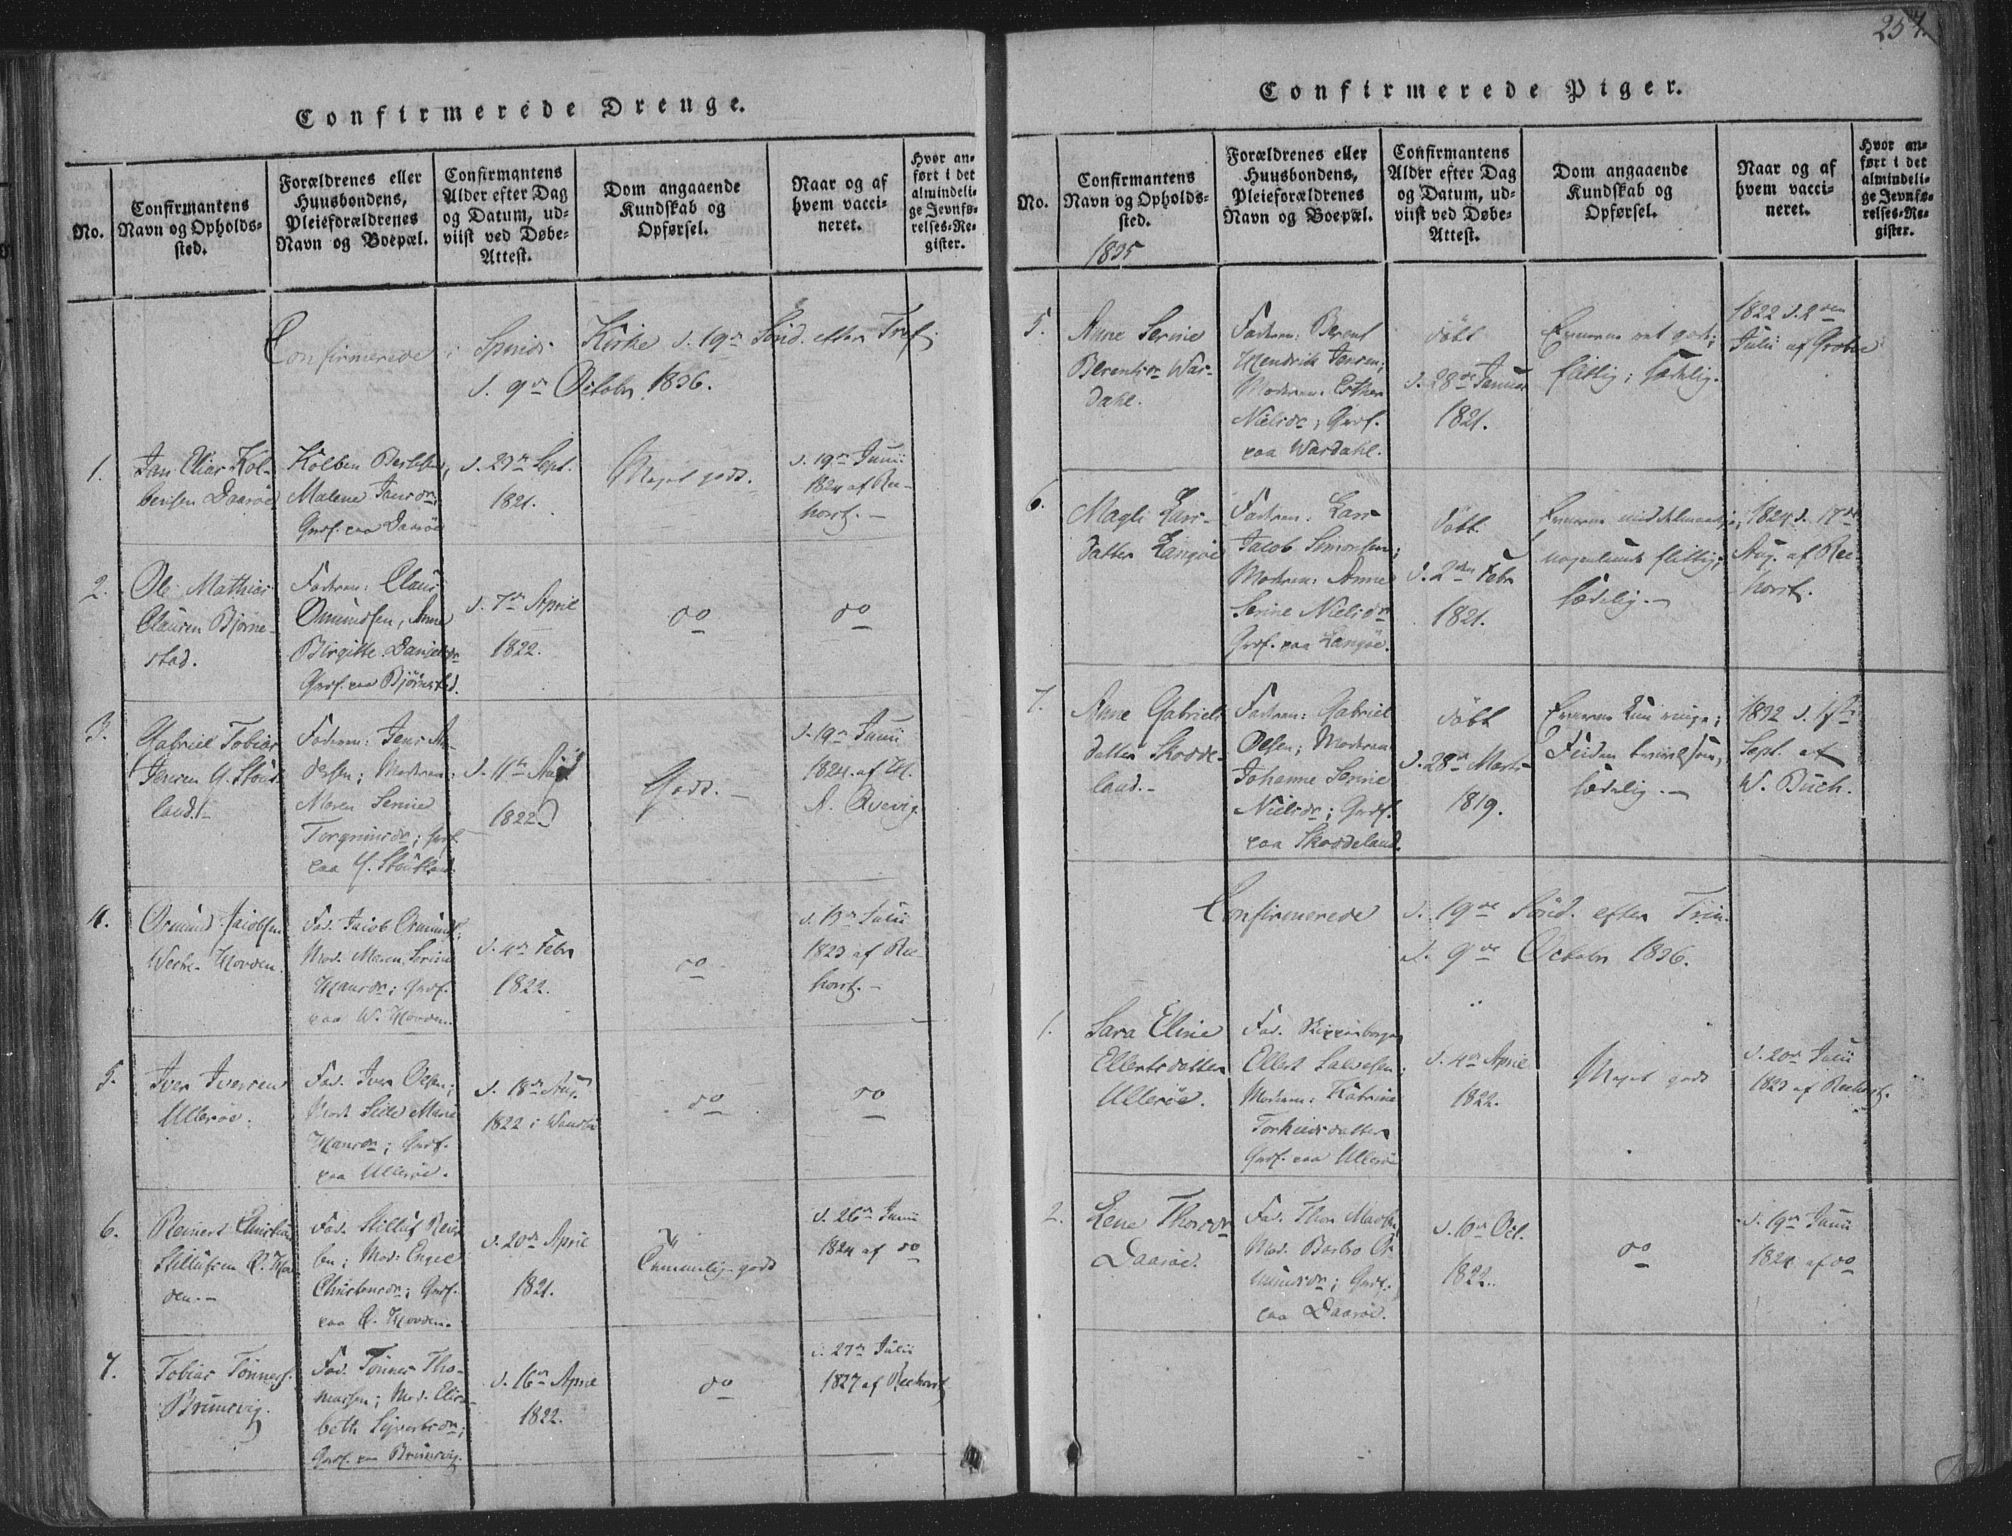 257.
Confirmerede Drenge.
No.
Confirmantens
Navn og Opholds-
sted.
Forældrenes eller
Huusbondens,
Pleieforældrenes
Navn og Boepæl.
Confirmantens
Alder efter Dag
og Datum, ud-
viist ved Døbe-
Attest.
Dom angaaende
Kundskab og
Opførsel.
Naar og af
hvem vacci-
neret.
Hvor an-
ført i det
almindeli-
ge Jevnfø-
relses-Re-
gister.
Confirmerede i Spinds Kirke d. 19de Sönd. efter Tref.
d. 9de Octobr 1836.
1.
Jan Elias Kol-
bensen Daaröe
Kolben Berlsen,
Malene Jansdr;
Grdf. paa Daaröe
d. 23de Sept.
1821.
Meget godt.
d. 19de Junii
1824 af Ree-
horst.
2.
Ole Mathias
Clausen Bjørne-
stad.
Faderen: Claus
Omundsen, Anne
Birgitte Danielsdr
Grdf. paa Bjørnestad.
d. 7de April
1822.
do
do
3.
Gabriel Tobias
Jensen Y. Stöut-
land.
Faderen: Jens An-
dersen; Moderen:
Maren Serine
Torgrimsdr; Grdf.
paa Y. Stöutland
d. 11te Aug
1822
Godt.
d. 19de Junii
1824. af H.
A. Qvevig.
4.
Omund Jacobsen
Westre Hovden.
Fad. Jacob Omunds.
Mod. Maren Serine
Hansdr; Grdf.
paa W. Hovden.
d. 4de Febr
1822.
do
d. 13de Julii
1823 af Ree-
horst.
5.
Iver Iversen
Ulleröe.
Fad. Iver Olsen;
Mod. Sille Marie
Hansdr; Grdf.
paa Ulleröe.
d. 18de Aug.
1822 i
do
do
6.
Reinert Christian
Stillufsen Ö. Hov-
den.
Fad. Stilluf Rein-
ertsen; Mod. Engel
Christensdr; Grdf.
paa Ö. Hovden.
d. 20de April
1821.
Temmelig godt
d. 26de Junii
1824 af do
7.
Tobias Tönnes.
Brunsvig.
Fad. Tönnes Tho-
massen; Mod. Elisa-
beth Sijvertsdr;
Grdf. paa Brunsvig.
d. 16de April
1822.
do
d. 27de Julii
1827 af Reehorst
Confirmerede Piger.
No.
Confirmantens
Navn og Opholds-
sted.
1835
Forældrenes eller
Huusbondens,
Pleieforældrenes
Navn og Boepæl.
Confirmantens
Alder efter Dag
og Datum, ud-
viist ved Døbe-
Attest.
Dom angaaende
Kundskab og
Opførsel.
Naar og af
hvem vacci-
neret.
Hvor an-
ført i det
almindeli-
ge Jevnfø-
relses-Re-
gister.
5.
Anne Serine
Berentsdr War-
dahl.
Faderen: Berent
Hendrik Jansen;
Moderen: Esther
Nielsdr; Grdf.
paa Wardahl.
döbt
d. 28de Januar
1821.
Evnerne ret gode;
flittig; sædelig.
1822 d. 2den
Julii af Grøbee
6.
Magli Lars-
datter Langöe
Faderen: Lars
Jacob Simonsen;
Moderen: Anne
Serine Nielsdr
Grdf. paa Langöe.
döbt
d. 2den Febr
1821.
Evnerne middelmaadige,
nogenlunde flittig;
sædelig.
1824 d. 17de
Aug. af Ree-
horst.
7.
Anne Gabriels-
datter Skodde-
land.
Faderen: Gabriel
Olsen; Moderen
Johanne Serine
Nielsdr; Grdf.
paa Skoddeland.
döbt
d. 28de Marts
1819.
Evnerne kun ringe;
Fliden
sædelig.
1832 d. 17de
Sept. af
W. Buch.
Confirmerede d. 19de Sönd. efter Trin.
d. 9de Octobr 1836.
1.
Sara Eline
Ellertsdatter
Ulleröe.
Fad. Skipsinborger
Ellert Salvesen;
Moderen: Katrine
Torkildsdatter
Grdf. paa Ulleröe
d. 4de April
1822.
Meget godt
d. 20de Julii
1823 af Reehorst.
2.
Lene Thorsdr
Daaröe.
Fad. Thor Mart.
Mod. Barbro O-
mundsdr; Grdf.
paa Daaröe.
d. 10de Oct.
1822.
do
d. 19de Junii
1824 af do